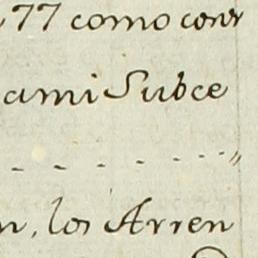 77 como conv
ami Subce
n, los Arren